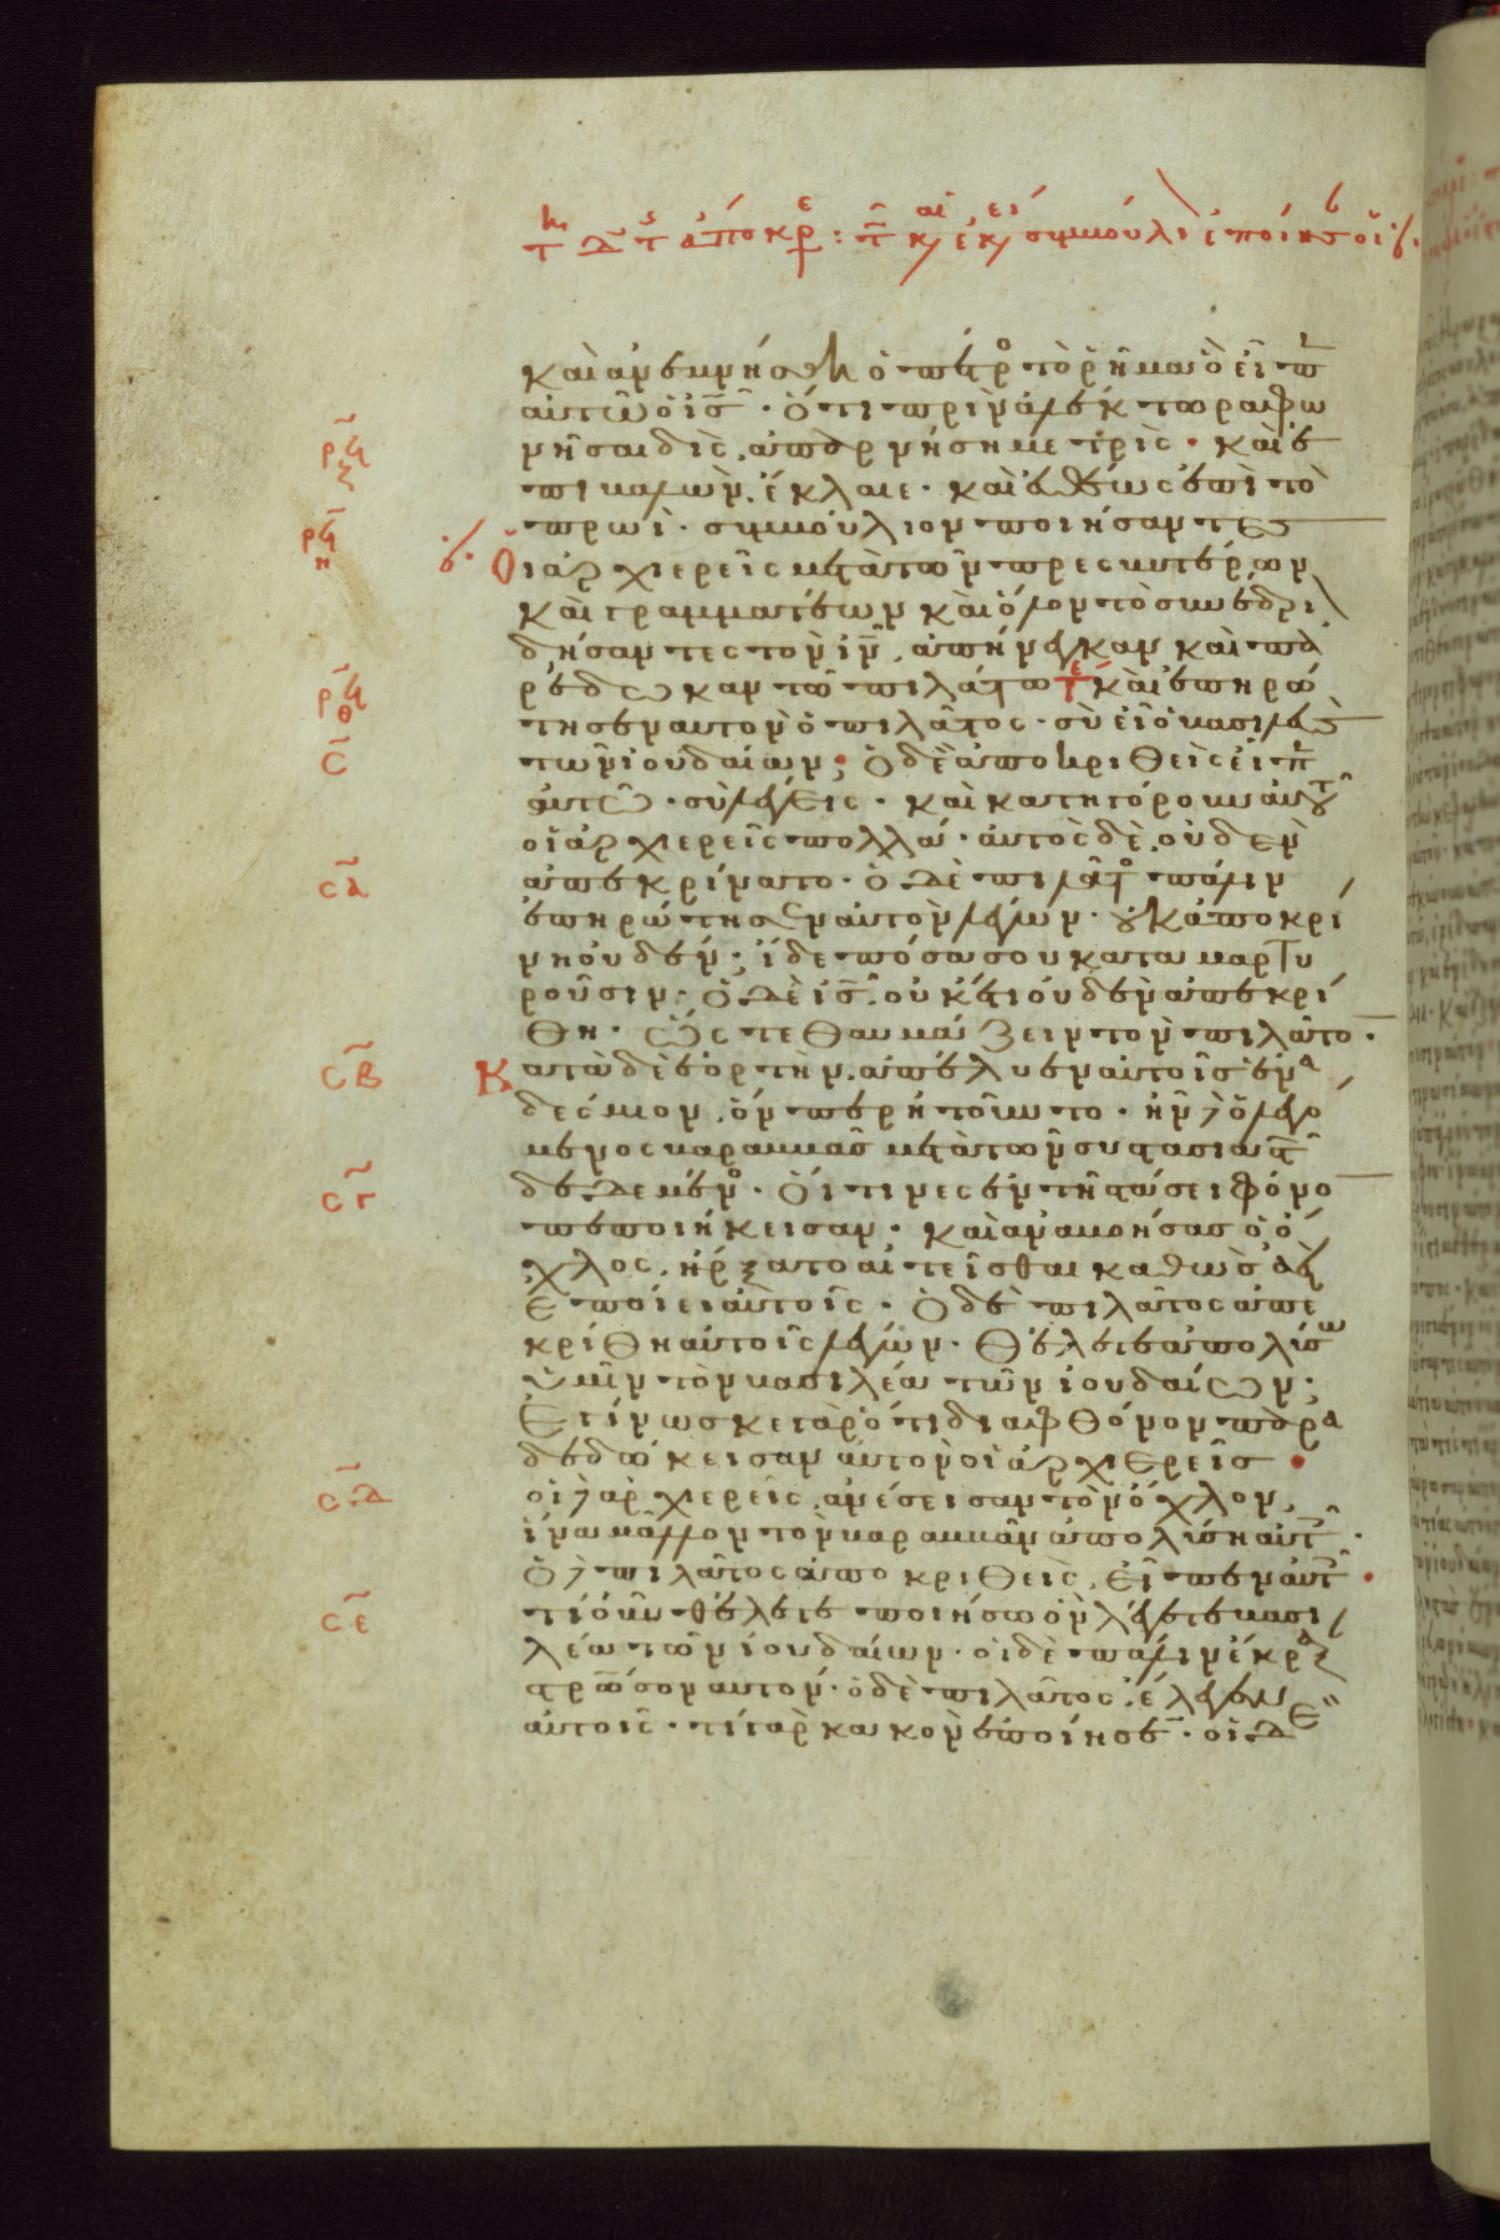 καὶ ἀνεμνήσθη ὁ πέτρο τὸ ῥῆμα ὃ εἶπ
αὐτῶ ὁ ἰς̅ · ὅτι πρὶν ἀλέκτορα φω
ρϟζ
νῆσαι δὶς, ἀπαρνήση με τρίς · καὶ ἐ
πιβαλὼν, ἔκλαιε · καὶ εὐθέως ἐπὶ τὸ
ρϟη
πρωῒ · συμβούλιον ποιήσαντες
Οἱ ἀρχιερεῖς μετὰ τῶν πρεσβυτέρων
καὶ γραμματέων καὶ ὅλον τὸ συνέδρι
δήσαντες τὸν ἰν̅, ἀπήνεγκαν καὶ πα
ρϟθ
ρέδωκαν τῶ πιλάτω καὶ ἐπηρώ
τησεν αυτον ὁ πιλᾶτος · σὺ εἶ ὁ βασιλεὺς
σ
τῶν ἰουδαίων; ὁ δὲ ἀποκριθεὶς εἶπ
αὐτῶ · σὺ λέγεις · καὶ κατηγόρουν αὐτοῦ
οἱ ἀρχιερεῖς πολλά · αὐτὸς δὲ, οὐδὲν
σα
ἀπεκρίνατο · ὁ δὲ πιλᾶτο πάλιν
ἐπηρώτησεν αὐτὸν λέγων · οὐκ ἀποκρί
νη οὐδέν; ἴδε πόσα σου καταμαρτυ
ροῦσιν · ὁ δὲ ἰς̅ οὐκέτι οὐδὲν ἀπεκρί
θη · ὥστε θαυμάζειν τὸν πιλᾶτο ·
σβ
Κατὰ δὲ ἑορτὴν, ἀπέλυεν αὐτοῖς ἕνα
δέσμιον, ὅν περ ἠτοῦντο · ἦν δὲ ὁ λεγό
μενος βαραββᾶς μετὰ τῶν συστασιαστῶν
σγ
δεδεμένο · οἵτινες ἐν τῆ στάσει φόνο
πεποιήκεισαν · καὶ ἀναβοήσας ὁ ὄ
χλος, ἤρξατο αἰτεῖσθαι καθὼς ἀεὶ
ἐποίει αὐτοῖς · ὁ δὲ πιλᾶτος ἀπε
κρίθη αὐτοῖς λέγων · θέλετε ἀπολύσω
ὑμῖν τὸν βασιλέα τῶν ἰουδαίων;
Εγίνωσκε γὰρ ὅτι διὰ φθόνον παρα
δεδώκεισαν αὐτὸν οἱ ἀρχιερεῖς
σδ
οἱ δὲ ἀρχιερεῖς, ἀνέσεισαν τὸν ὄχλον,
ἵνα μᾶλλον τὸν βαραββᾶν ἀπολύση αὐτ ·
ὁ δὲ πιλᾶτος ἀποκριθεὶς, εἶπεν αὐτ
σε
τί οὖν θέλετε ποιήσω ὃν λέγετε βασι
λέα τῶν ἰουδαίων · οἱ δὲ πάλιν ἔκραξ
σταρωσον αυτον · ὁ δὲ πιλᾶτος, ἔλεγεν
αὐτοῖς · τί γὰρ κακὸν ἐποίησεν · οἱ δὲ